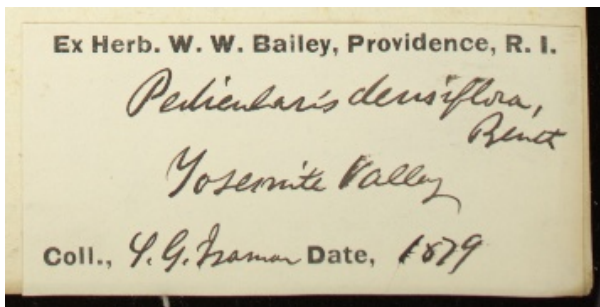 Ex Herb. W. W. Bailey, Providence, R. I.
Pedicularis densiflora,
Benth
Yosemite Valley
Coll., Date, 1879